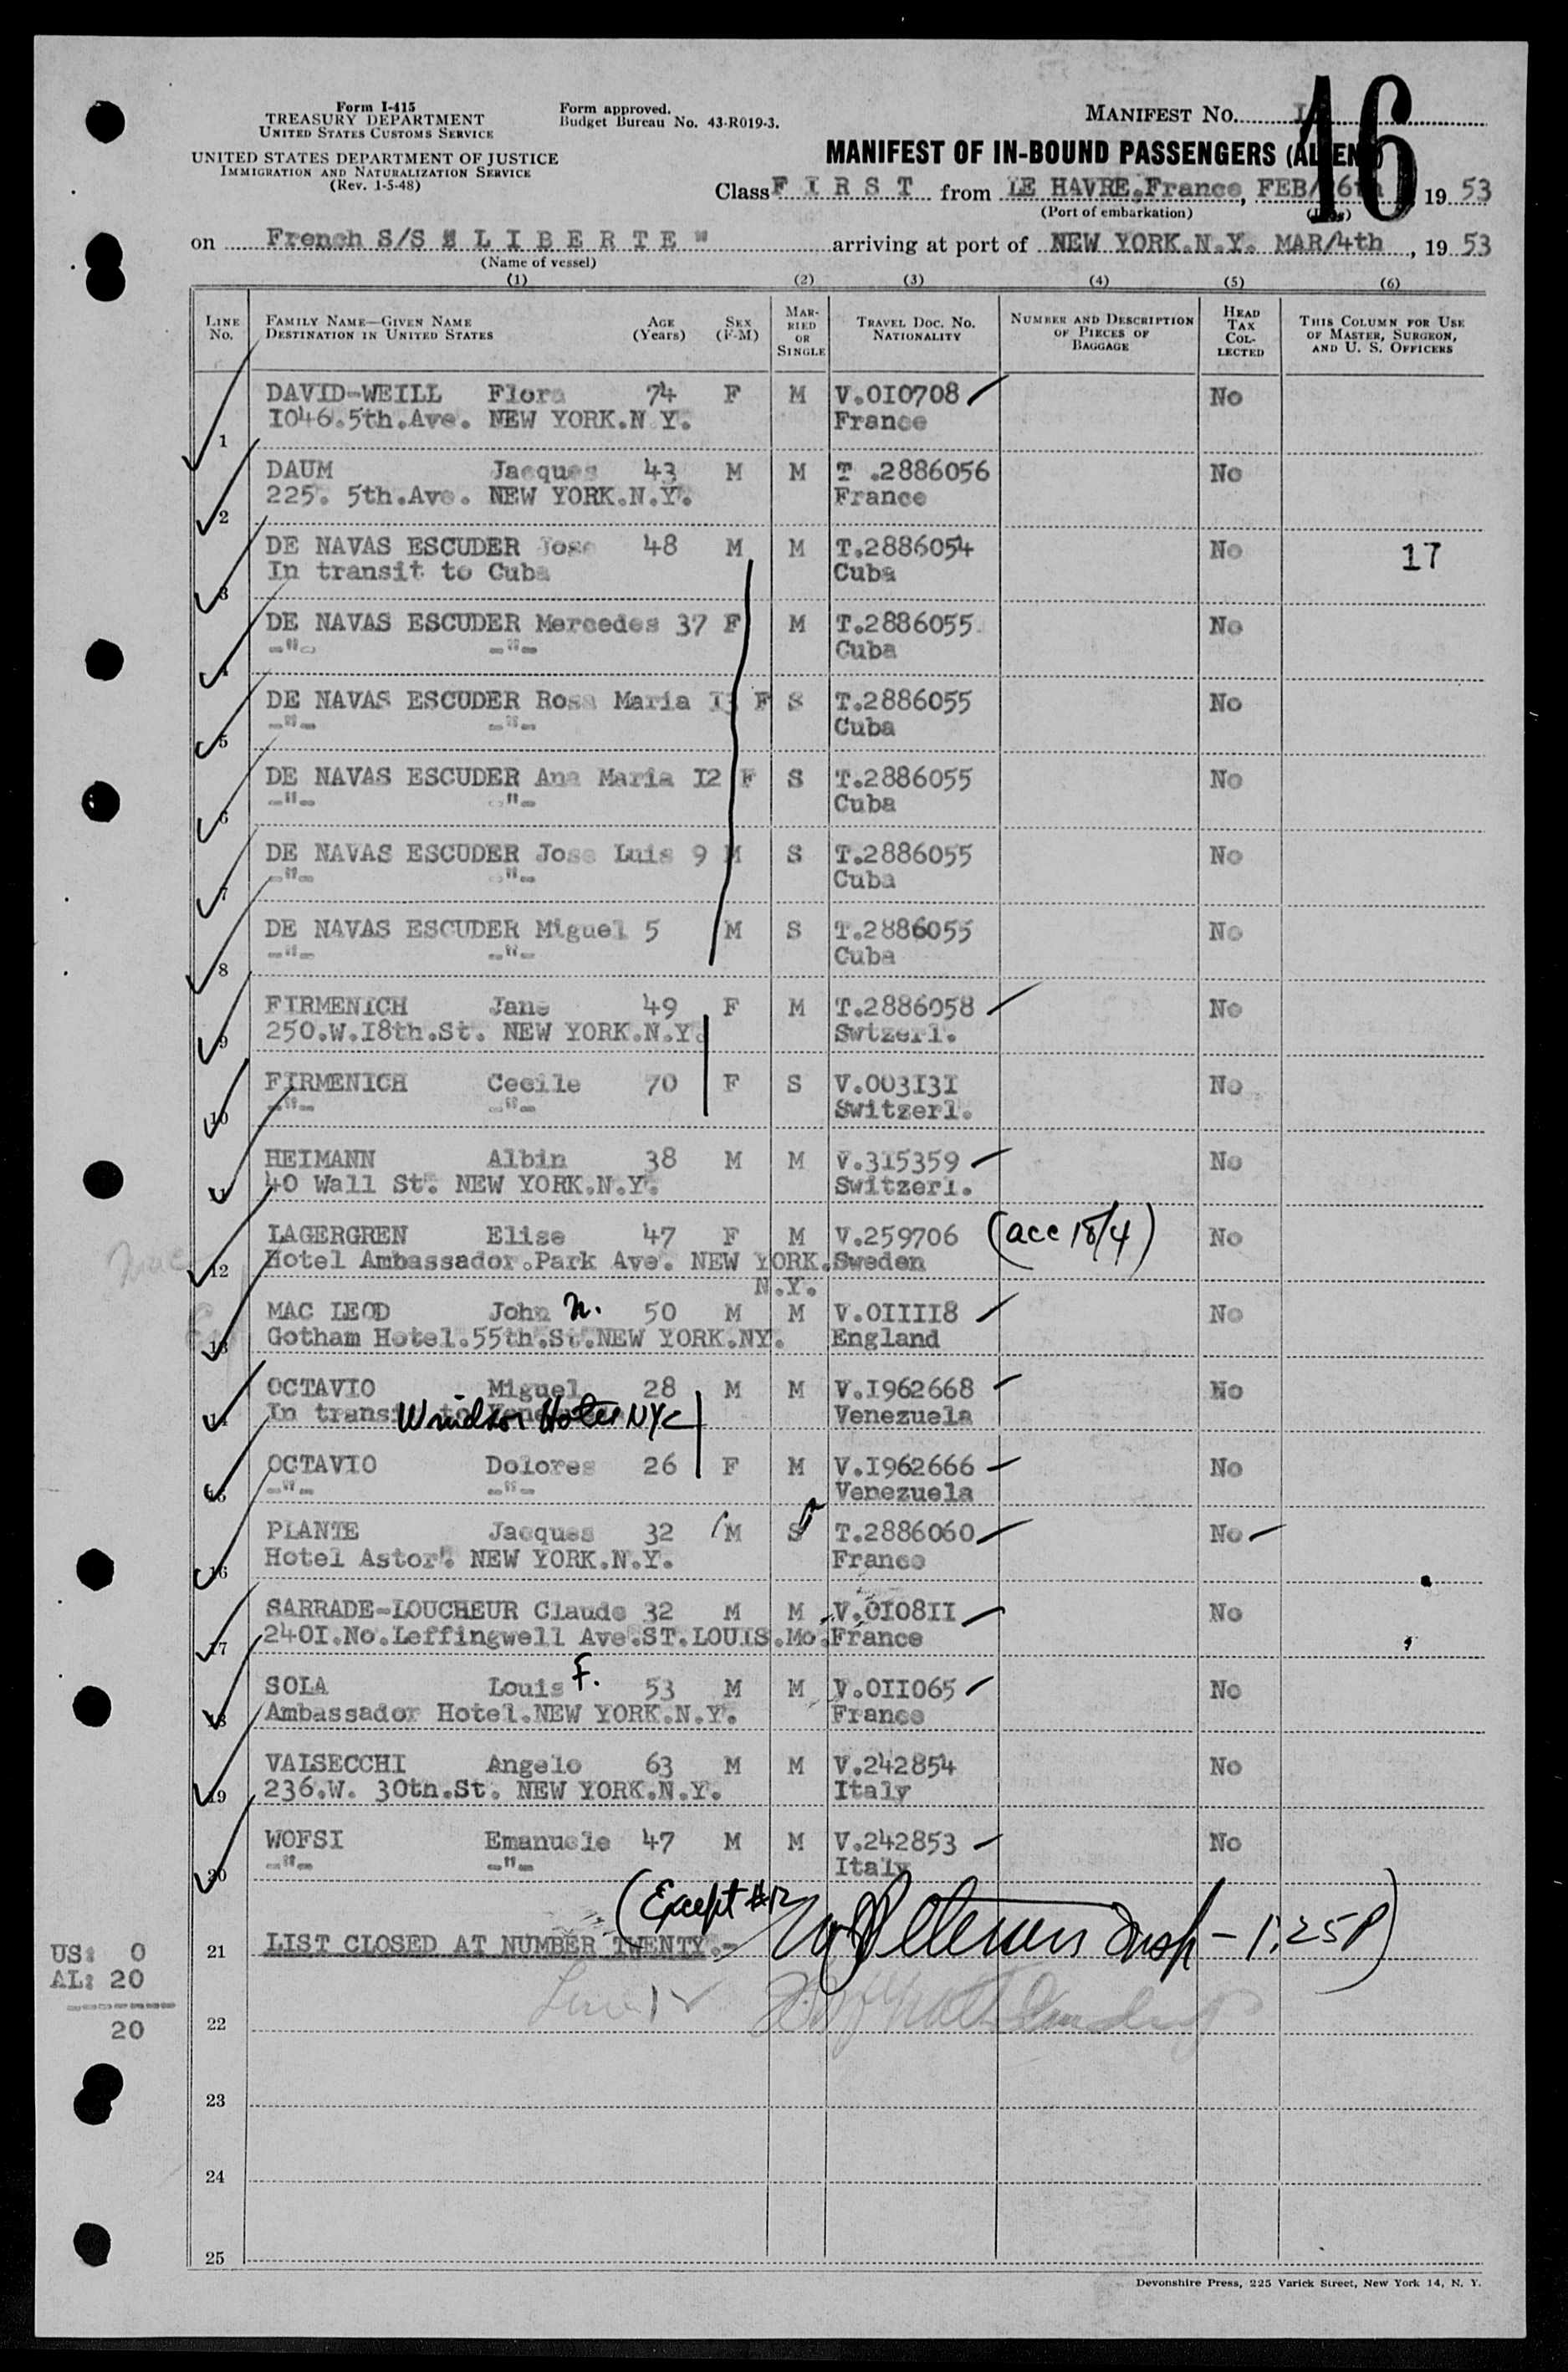 Form I-415
TREASURY DEPARTMENT
UNITED STATES CUSTOMS SERVICE
UNITED STATES DEPARTMENT OF JUSTICE
IMMIGRATION AND NATURALIZATION SERVICE
(Rev. 1-5-48)
Form approved.
Budget Bureau No. 43-R019-3.
MANIFEST NO. I
16
MANIFEST OF IN-BOUND PASSENGERS (ALIEN)
Class F I R S T from LE HAVRE.France, FEB/ 6th, 19 53
(Port of embarkation)
on French S/S " L I B E R T E " arriving at port of NEW YORK.N.Y. MAR/4th, 19 53
(Name of vessel)
(1) (2) (3) (4) (5) (6)
LINE NO. FAMILY NAME—GIVEN NAME DESTINATION IN UNITED STATES AGE (Years) SEX (F-M) MARRIED OR SINGLE TRAVEL DOC. NO. NATIONALITY NUMBER AND DESCRIPTION OF PIECES OF BAGGAGE HEAD TAX COLLECTED THIS COLUMN FOR USE OF MASTER, SURGEON, AND U. S. OFFICERS
DAVID-WEILL Flora 74 F M V.010708 No
1 1046.5th.Ave. NEW YORK.N Y. France
DAUM Jacques 43 M M T .2886056 No
2 225. 5th.Ave. NEW YORK.N.Y. France
DE NAVAS ESCUDER Jose 48 M M T.2886054 No 17
3 In transit to Cuba Cuba
DE NAVAS ESCUDER Mercedes 37 F M T.2886055 No
4 -"- -"- Cuba
DE NAVAS ESCUDER Rosa Maria I3 F S T.2886055 No
5 -"- -"- Cuba
DE NAVAS ESCUDER Ana Maria I2 F S T.2886055 No
6 -"- -"- Cuba
DE NAVAS ESCUDER Jose Luis 9 M S T.2886055 No
7 -"- -"- Cuba
DE NAVAS ESCUDER Miguel 5 M S T.2886055 No
8 -"- -"- Cuba
FIRMENICH Jane 49 F M T.2886058 No
9 250.W.I8th.St. NEW YORK.N.Y. Swtzerl.
FIRMENICH Cecile 70 F S V.003I3I No
10 -"- -"- Switzerl.
HEIMANN Albin 38 M M V.315359 No
11 40 Wall St. NEW YORK.N.Y. Switzerl.
LAGERGREN Elise 47 F M V.259706 (acc 18/4) No
12 Hotel Ambassador.Park Ave. NEW YORK. Sweden
N.Y.
MAC LEOD John N. 50 M M V.0IIII8 No
13 Gotham Hotel.55th.St.NEW YORK.NY. England
OCTAVIO Miguel 28 M M V.I962668 No
14 In transit to Venezuela Windsor Hotel NYC Venezuela
OCTAVIO Dolores 26 F M V.I962666 No
15 -"- -"- Venezuela
PLANTE Jacques 32 M S T.2886060 No
16 Hotel Astor. NEW YORK.N.Y. France
SARRADE-LOUCHEUR Claude 32 M M V.0I08II No
17 240I.No.Leffingwell Ave.ST.LOUIS.Mo. France
SOLA Louis F. 53 M M V.0II065 No
18 Ambassador Hotel.NEW YORK.N.Y. France
VALSECCHI Angelo 63 M M V.242854 No
19 236.W. 30th.St. NEW YORK.N.Y. Italy
WOFSI Emanuele 47 M M V.242853 No
20 -"- -"- Italy
(Except #12
21 LIST CLOSED AT NUMBER TWENTY.- Insp - 1:25P)
US: 0
AL: 20
20
22
23
24
25
Devonshire Press, 225 Varick Street, New York 14, N. Y.